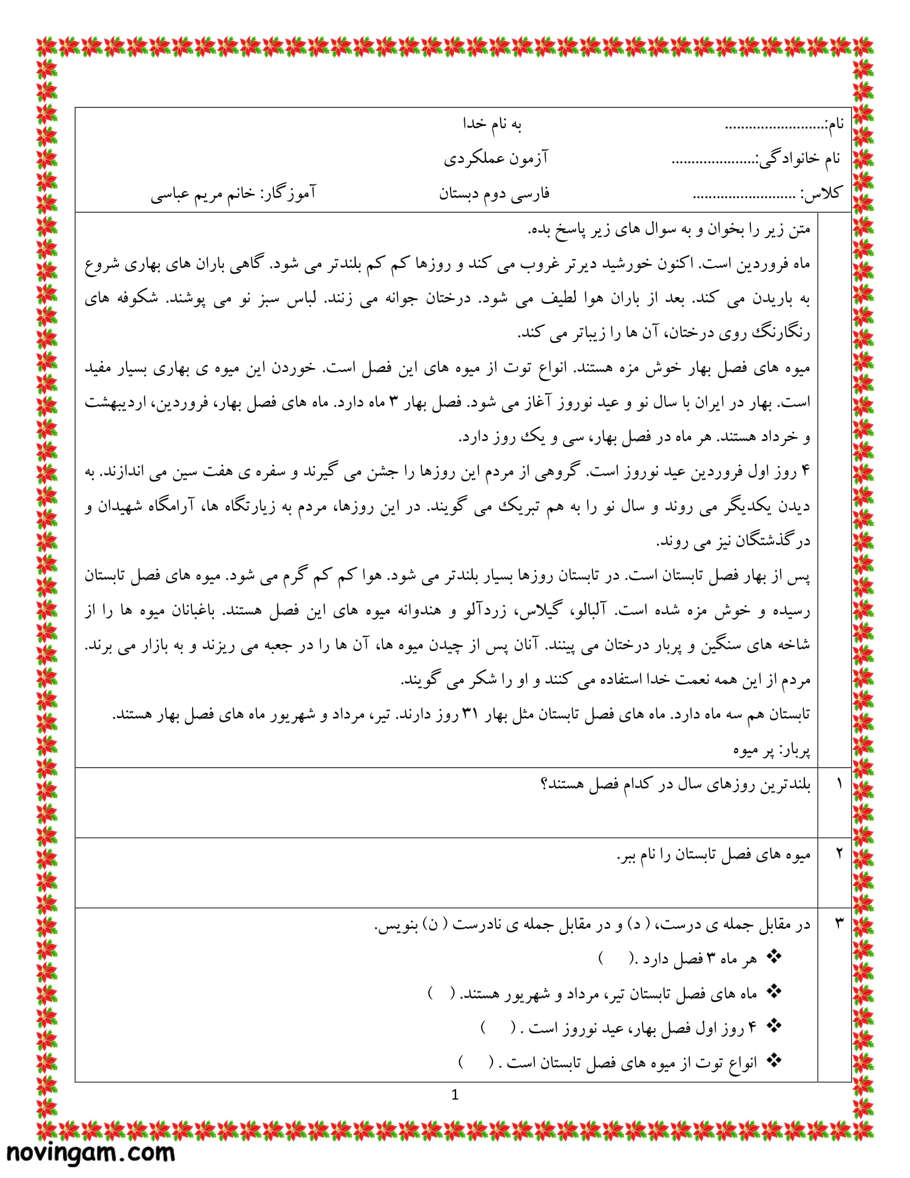 نام:.........................
به نام خدا
نام خانوادگی:.....................
آزمون عملکردی
کلاس: ..........................
فارسی دوم دبستان
آموزگار: خانم مریم عباسی
متن زیر را بخوان و به سوال های زیر پاسخ بده.
ماه فروردین است. اکنون خورشید دیرتر غروب می کند و روزها کم کم بلندتر می شود. گاهی باران های بهاری شروع
به باریدن می کند. بعد از باران هوا لطیف می شود. درختان جوانه می زنند. لباس سبز نو می پوشند. شکوفه های
رنگارنگ روی درختان، آن ها را زیباتر می کند.
میوه های فصل بهار خوش مزه هستند. انواع توت از میوه های این فصل است. خوردن این میوه ی بهاری بسیار مفید
است. بهار در ایران با سال نو و عید نوروز آغاز می شود. فصل بهار ۳ ماه دارد. ماه های فصل بهار، فروردین، اردیبهشت
و خرداد هستند. هر ماه در فصل بهار، سی و یک روز دارد.
۴ روز اول فروردین عید نوروز است. گروهی از مردم این روزها را جشن می گیرند و سفره ی هفت سین می اندازند. به
دیدن یکدیگر می روند و سال نو را به هم تبریک می گویند. در این روزها، مردم به زیارتگاه ها، آرامگاه شهیدان و
درگذشتگان نیز می روند.
پس از بهار فصل تابستان است. در تابستان روزها بسیار بلندتر می شود. هوا کم کم گرم می شود. میوه های فصل تابستان
رسیده و خوش مزه شده است. آلبالو، گیلاس، زردآلو و هندوانه میوه های این فصل هستند. باغبانان میوه ها را از
شاخه های سنگین و پربار درختان می پینند. آنان پس از چیدن میوه ها، آن ها را در جعبه می ریزند و به بازار می برند.
مردم از این همه نعمت خدا استفاده می کنند و او را شکر می گویند.
تابستان هم سه ماه دارد. ماه های فصل تابستان مثل بهار ۳۱ روز دارند. تیر، مرداد و شهریور ماه های فصل بهار هستند.
پربار: پر میوه
۱ بلندترین روزهای سال در کدام فصل هستند؟
۲ میوه های فصل تابستان را نام ببر.
۳ در مقابل جمله ی درست، ( د) و در مقابل جمله ی نادرست ( ن) بنویس.
❖ هر ماه ۳ فصل دارد .( )
❖ ماه های فصل تابستان تیر، مرداد و شهریور هستند. ( )
❖ ۴ روز اول فصل بهار، عید نوروز است . ( )
❖ انواع توت از میوه های فصل تابستان است . ( )
1
novingam.com